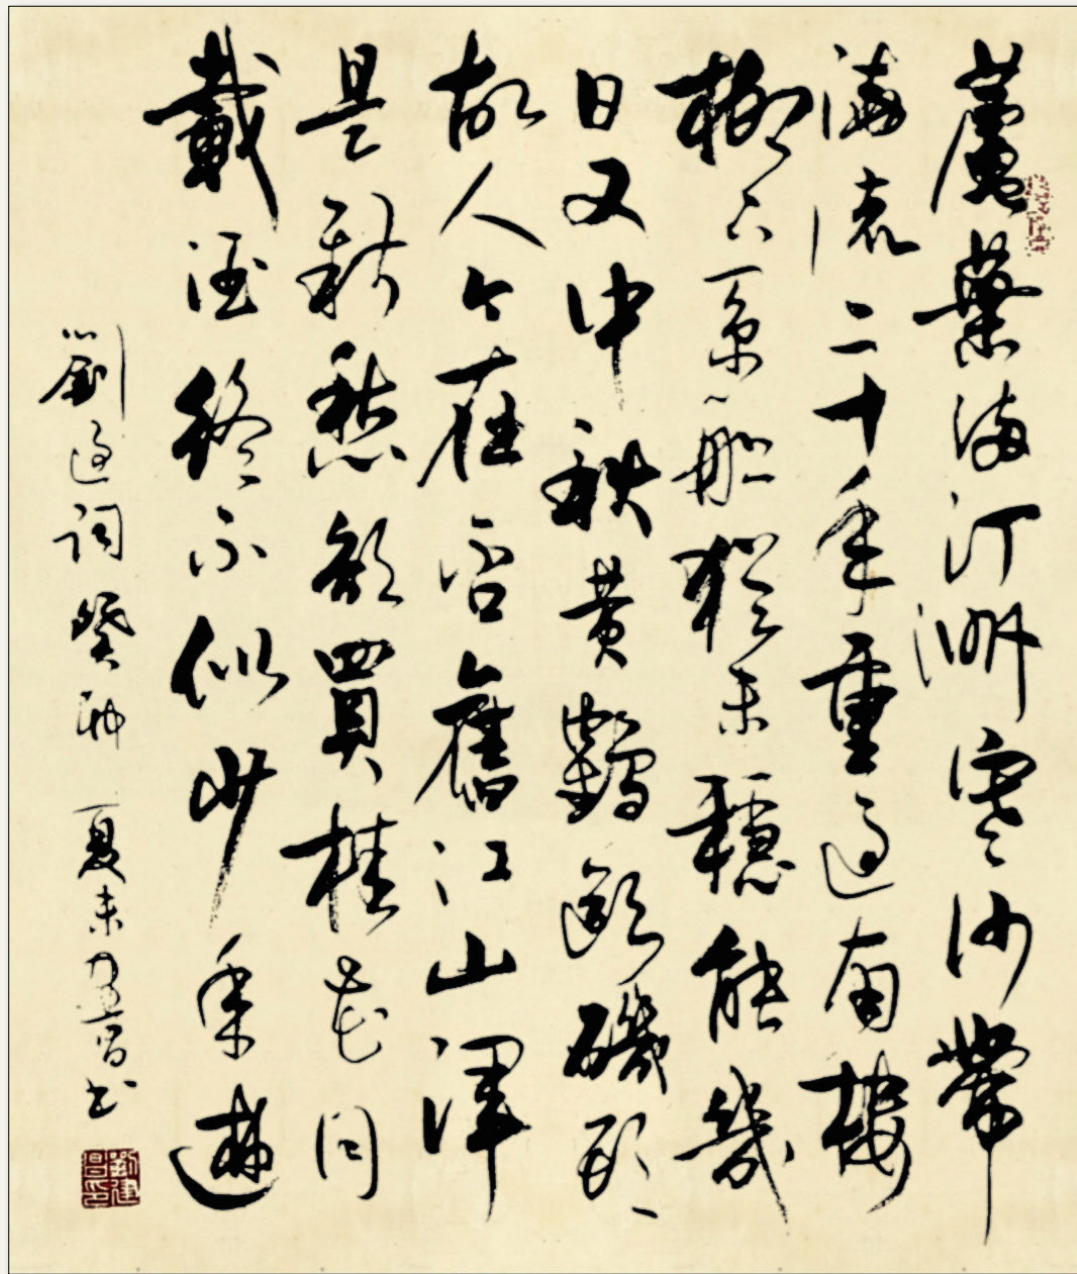 蘆葉滿汀洲寒沙帶
淺流二十年重過南樓
柳下系船猶未穩能幾
日又中秋黃鶴斷磯頭
故人今在否舊江山渾
是新愁欲買桂花同
載酒終不似少年遊
劉過詞 癸卯 夏末建昌书
劉建昌印